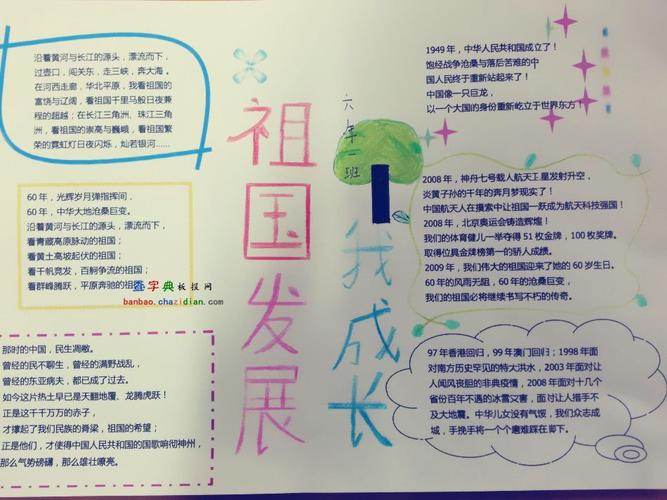 沿着黄河与长江的源头，漂流而下，
过壶口，闯关东，走三峡，奔大海 。
在河西走廊，华北平原，我看祖国的
富饶与辽阔，看祖国千里马般日夜兼
程的超越；在长江三角洲、珠江三角
洲，看祖国的崇高与巍峨，看祖国繁
荣的霓虹灯日夜闪烁，灿若银河……
60 年，光辉岁月弹指挥间，
60 年，中华大地沧桑巨变。
沿着黄河奔流的方向看中国：
看青藏高原脉动的祖国；
看黄土高坡起伏的祖国；
看千帆竞发，百舸争流的祖国；
看群峰腾跃，平原奔驰的祖
查字典板报网
banbao.chazidian.com
那时的中国，民生凋敝。
曾经的民不聊生，曾经的满野战乱，
曾经的东亚病夫，都已成了过去。
如今这片热土早已是天翻地覆、龙腾虎跃！
正是这千千万万的赤子，
才撑起了我们民族的脊梁，祖国的希望；
正是他们，才使得中国人民共和国的国歌响彻神州，
那么气势磅礴，那么雄壮嘹亮。
祖国发展
六年一班
我成长
1949 年，中华人民共和国成立了！
饱经战争沧桑与落后苦难的中
国人民终于重新站起来了！
中国像一只巨龙，
以一个大国的身份重新屹立于世界东方！
2008 年，神舟七号载人航天王星发射升空，
炎黄子孙的千年的奔月梦现实了！
中国航天人在摸索中让祖国一跃成为航天科技强国！
2008 年，北京奥运会铸造辉煌！
我们的体育健儿一举夺得 51 枚金牌，100 枚奖牌。
取得位具金牌榜第一的骄人成绩。
2009 年，我们伟大的祖国迎来了她的 60 岁生日。
60 年的风雨无阻，60 年的沧桑巨变，
我们的祖国必将继续书写不朽的传奇。
97 年香港回归，99 年澳门回归；1998 年面
对南方历史罕见的特大洪水，2003 年面对让
人闻风丧胆的非典疫情，2008 年面对十几个
省份百年不遇的冰雪灾害，面对让人措手不
及大地震。中华儿女没有气馁，我们众志成
城，手挽手将一个个磨难踩在脚下。